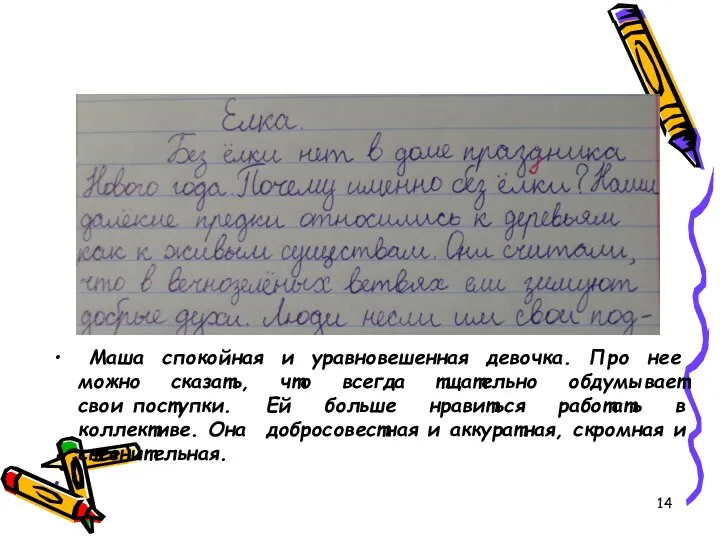 Елка.
Без ёлки нет в доме праздника
Нового года. Почему именно без ёлки? Наши
далёкие предки относились к деревьям
как к живым существам. Они считали,
что в вечнозелёных ветвях ели зимуют
добрые духи. Люди несли им свои под-
• Маша спокойная и уравновешенная девочка. Про нее
можно сказать, что всегда тщательно обдумывает
свои поступки. Ей больше нравиться работать в
коллективе. Она добросовестная и аккуратная, скромная и
14